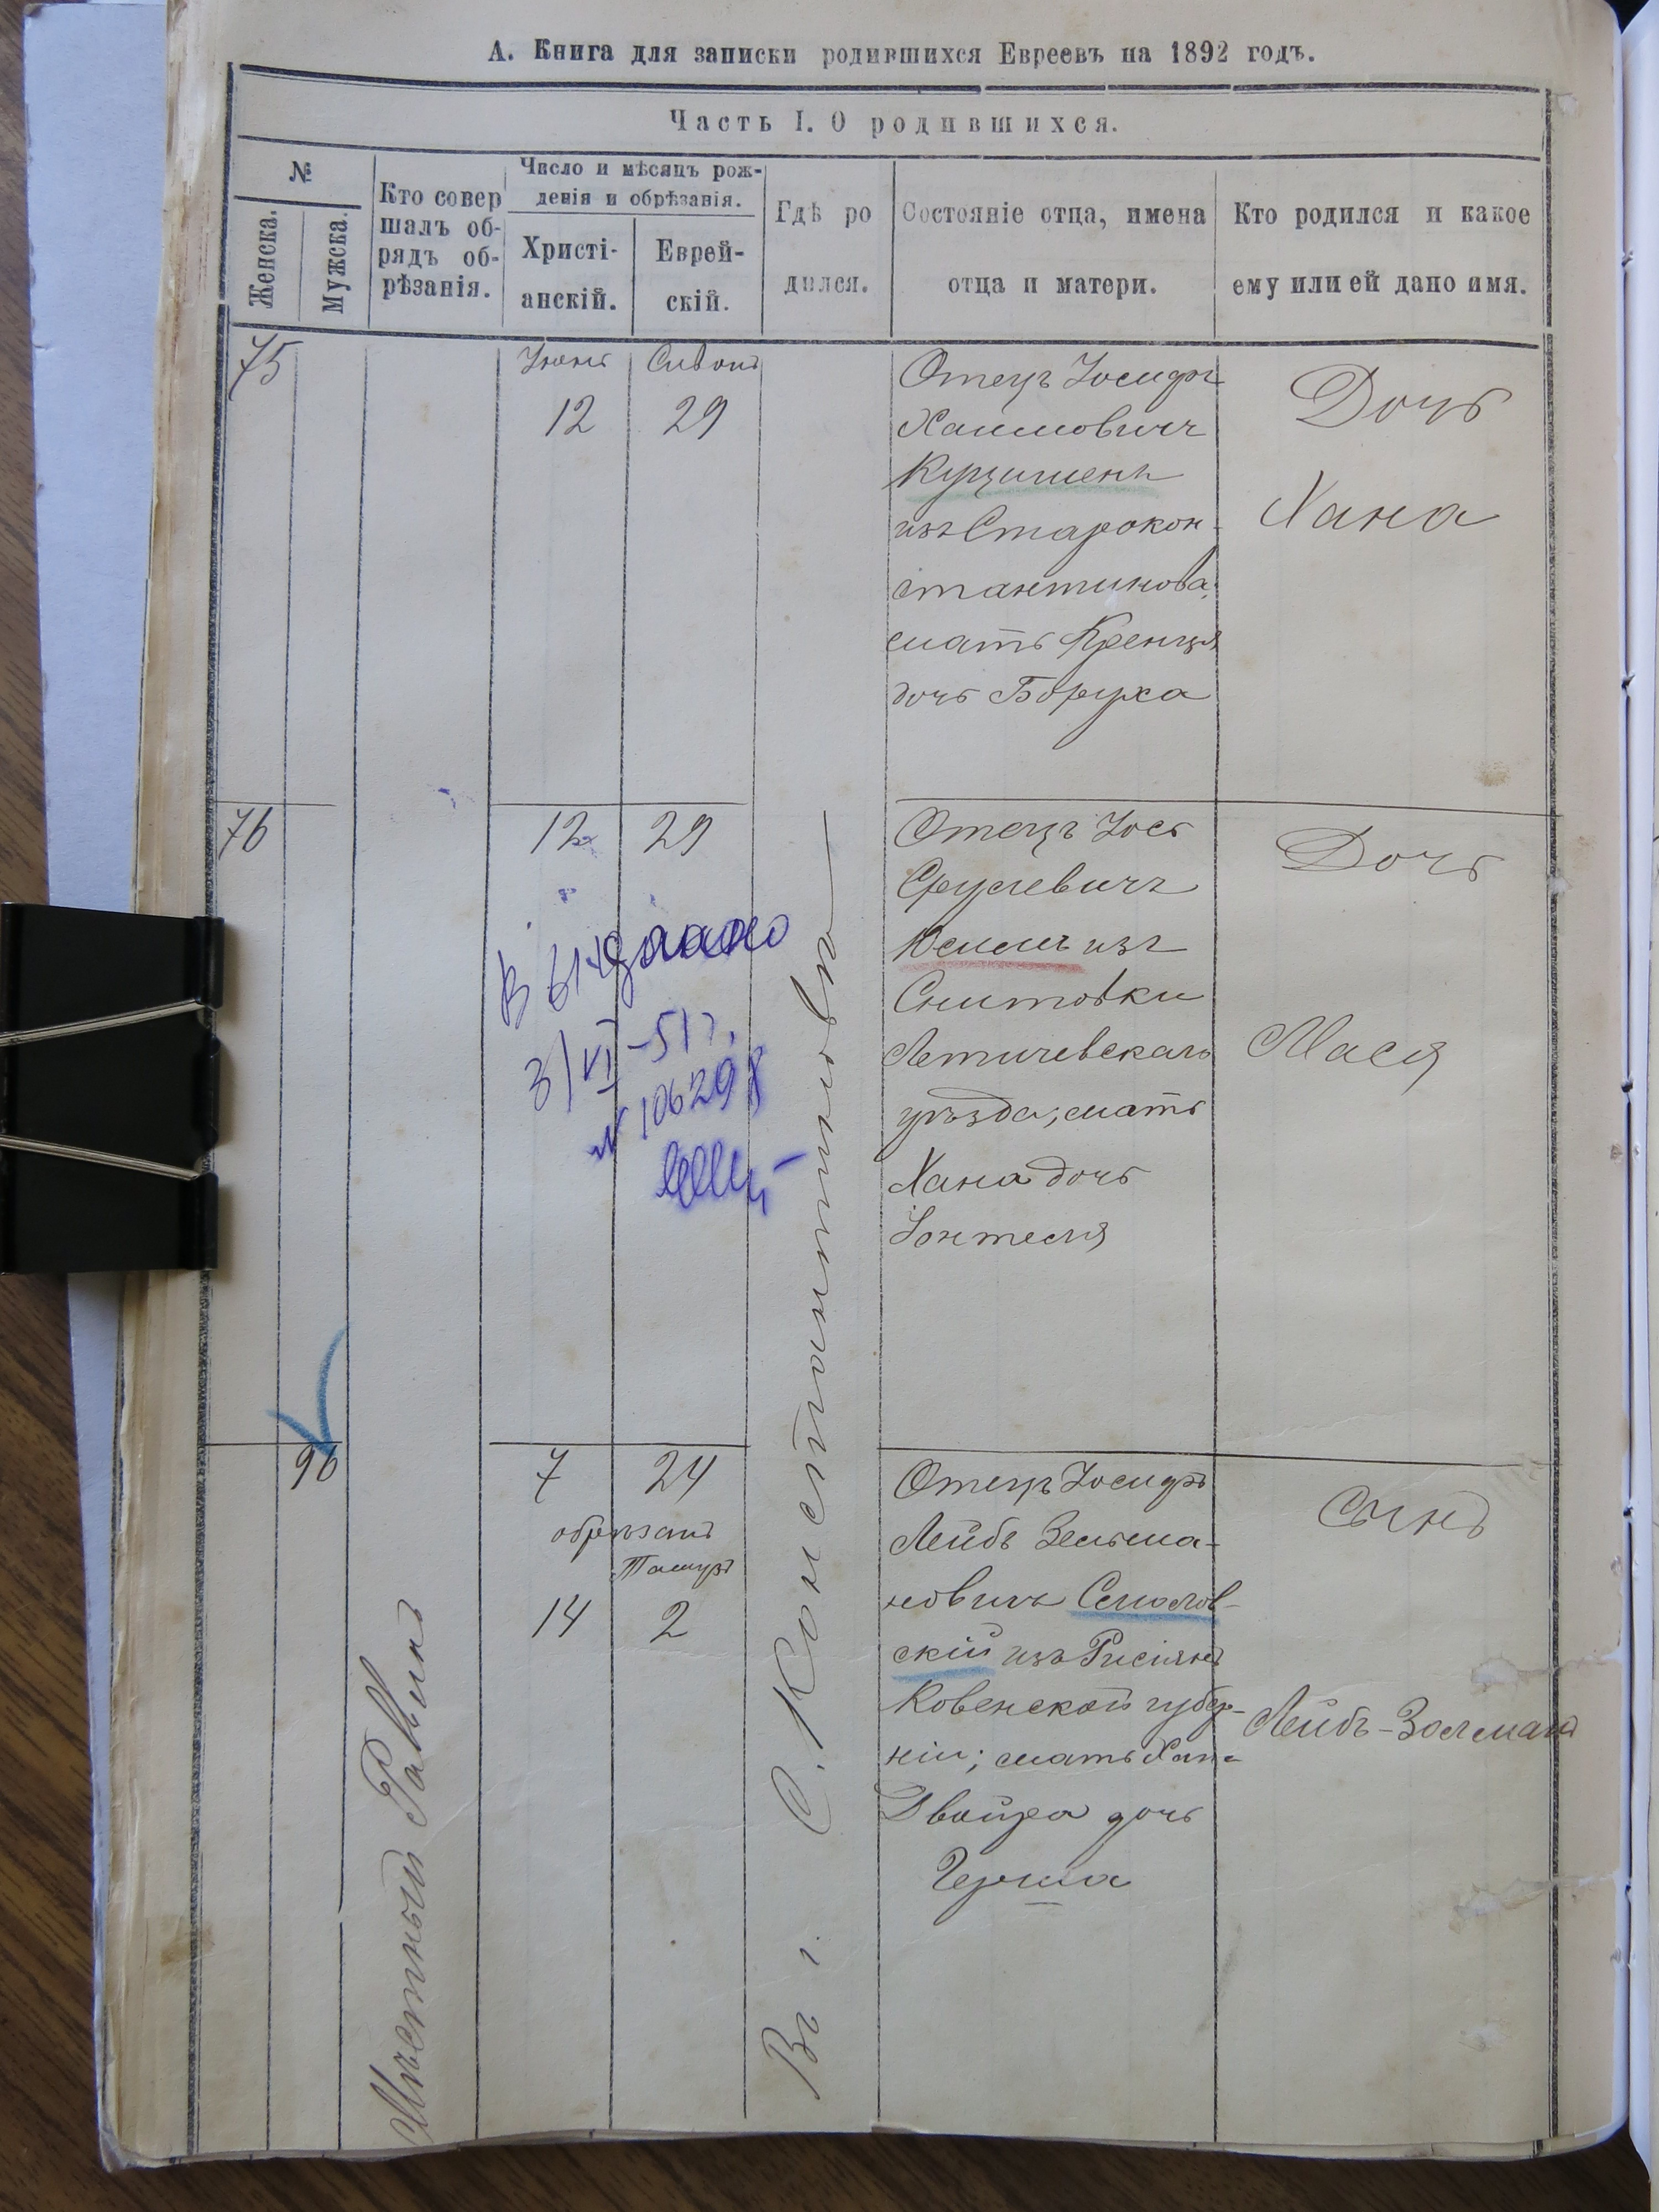 А. Книга для записки родившихся Евреевъ на 1892 годъ.
Часть I. О родившихся.
№
Женска.
Мужска.
Кто совер
шалъ об-
рядъ об-
рѣзанія.
Число и мѣсяцъ рож-
денія и обрѣзанія.
Христі-
анскій.
Еврей-
скій.
Гдѣ ро
дился.
Состояніе отца, имена
отца и матери.
Кто родился и какое
ему или ей дано имя.
75
Іюнь
12
Сивонъ
29
Отецъ Іосифъ
Хаимовичъ
Куцименъ
изъ Старокон-
стантинова;
мать Кренця
дочь Боруха
Дочь
Хана
76
12
29
Выдано
3/VI-51г.
№ 106298
Отецъ Іось
Срулевичъ
изъ
Снитовки
Летичевскаго
уѣзда; мать
Хана дочь
Іонтеля
Дочь
Мася
96
Мѣстный Раввинъ
7
24
обрѣзанъ
Тамузъ
14
2
Въ г. С. Константиновѣ
Отецъ Іосифъ
Лейбъ Зельма-
новичъ Смолов-
скій изъ
Ковенской губер-
ніи; мать Хана
Двойра дочь
Герша
Сынъ
Лейбъ-Золманъ